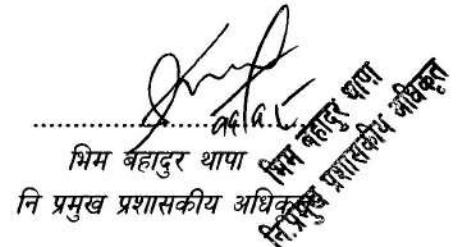 भिम बहादुर थापा
नि प्रमुख प्रशासकीय अधिकृत
भिम बहादुर थापा
नि.प्रमुख प्रशासकीय अधिकृत